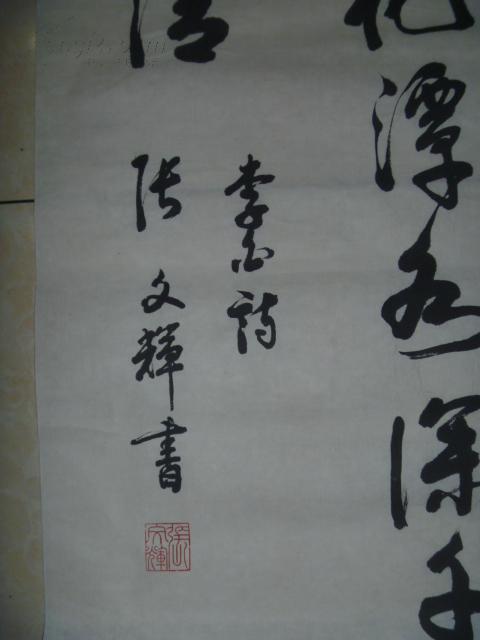 花潭水深千
情
李白詩
張文輝書
張文輝